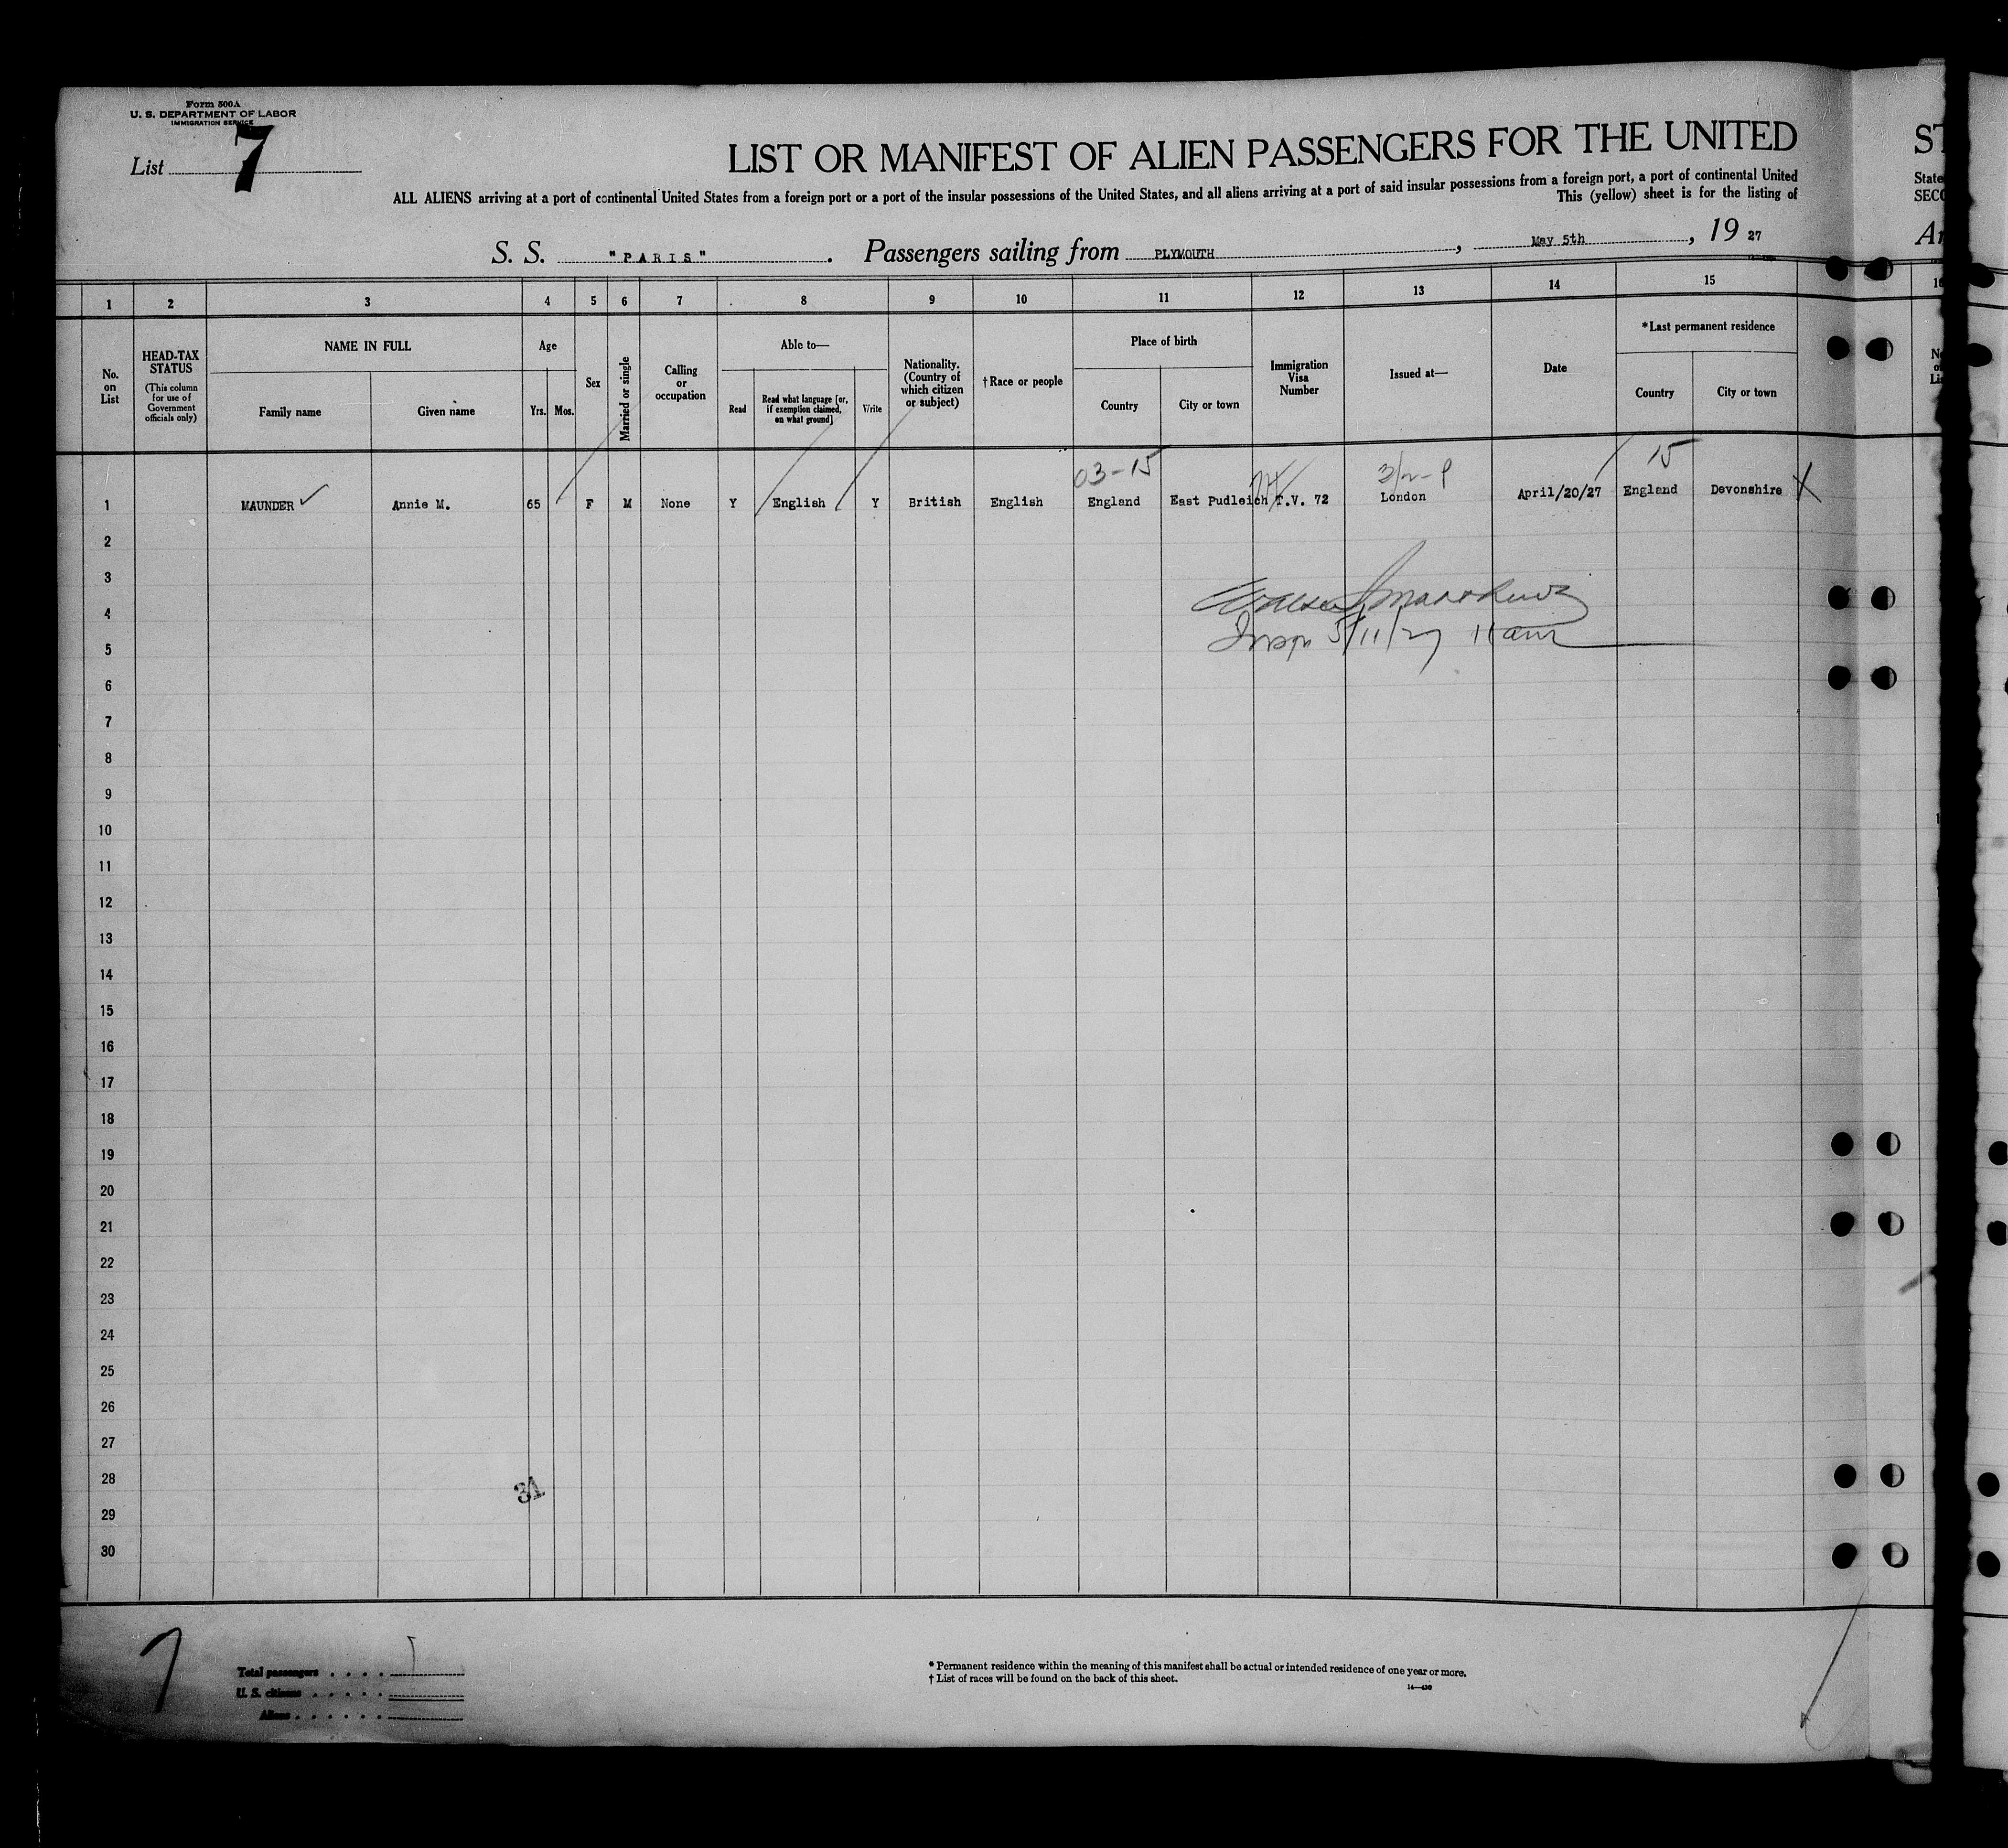 Form 500A
U. S. DEPARTMENT OF LABOR
IMMIGRATION SERVICE
List 7
LIST OR MANIFEST OF ALIEN PASSENGERS FOR THE UNITED
ST
ALL ALIENS arriving at a port of continental United States from a foreign port or a port of the insular possessions of the United States, and all aliens arriving at a port of said insular possessions from a foreign port, a port of continental United
State
This (yellow) sheet is for the listing of
SECO
S. S. "PARIS". Passengers sailing from PLYMOUTH, May 5th, 19 27
Ar
1 2 3 4 5 6 7 8 9 10 11 12 13 14 15 16
No. on List
HEAD-TAX STATUS
(This column for use of Government officials only)
NAME IN FULL
Family name Given name
Age
Yrs. Mos.
Sex
Married or single
Calling or occupation
Able to—
Read
Read what language [or, if exemption claimed, on what ground]
Write
Nationality. (Country of which citizen or subject)
†Race or people
Place of birth
Country City or town
Immigration Visa Number
Issued at—
Date
*Last permanent residence
Country City or town
03-15 15
1 MAUNDER Annie M. 65 F M None Y English Y British English England East Pudleigh T.V. 72 London April/20/27 England Devonshire X
2
3
4
5
5/11/27 11 am
6
7
8
9
10
11
12
13
14
15
16
17
18
19
20
21
22
23
24
25
26
27
28
31
29
30
7
Total passengers
U. S. citizens
Aliens
* Permanent residence within the meaning of this manifest shall be actual or intended residence of one year or more.
† List of races will be found on the back of this sheet.